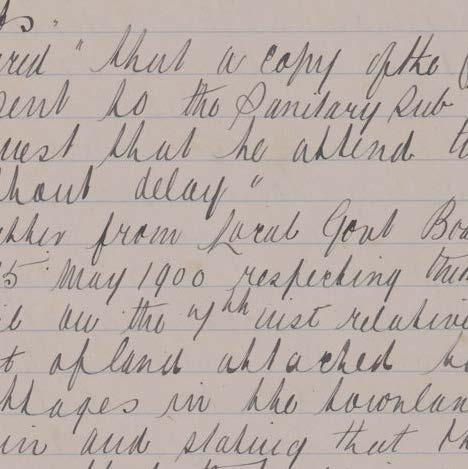 ts"
ered "that a copy of the
sent to the Sanitary Sub
uest that he attend to
thout delay"
etter from Local Govt Boa
5 May 1900 respecting
il on the 7th inst relative
t of land attached to
ttages in the townlan
in and stating that